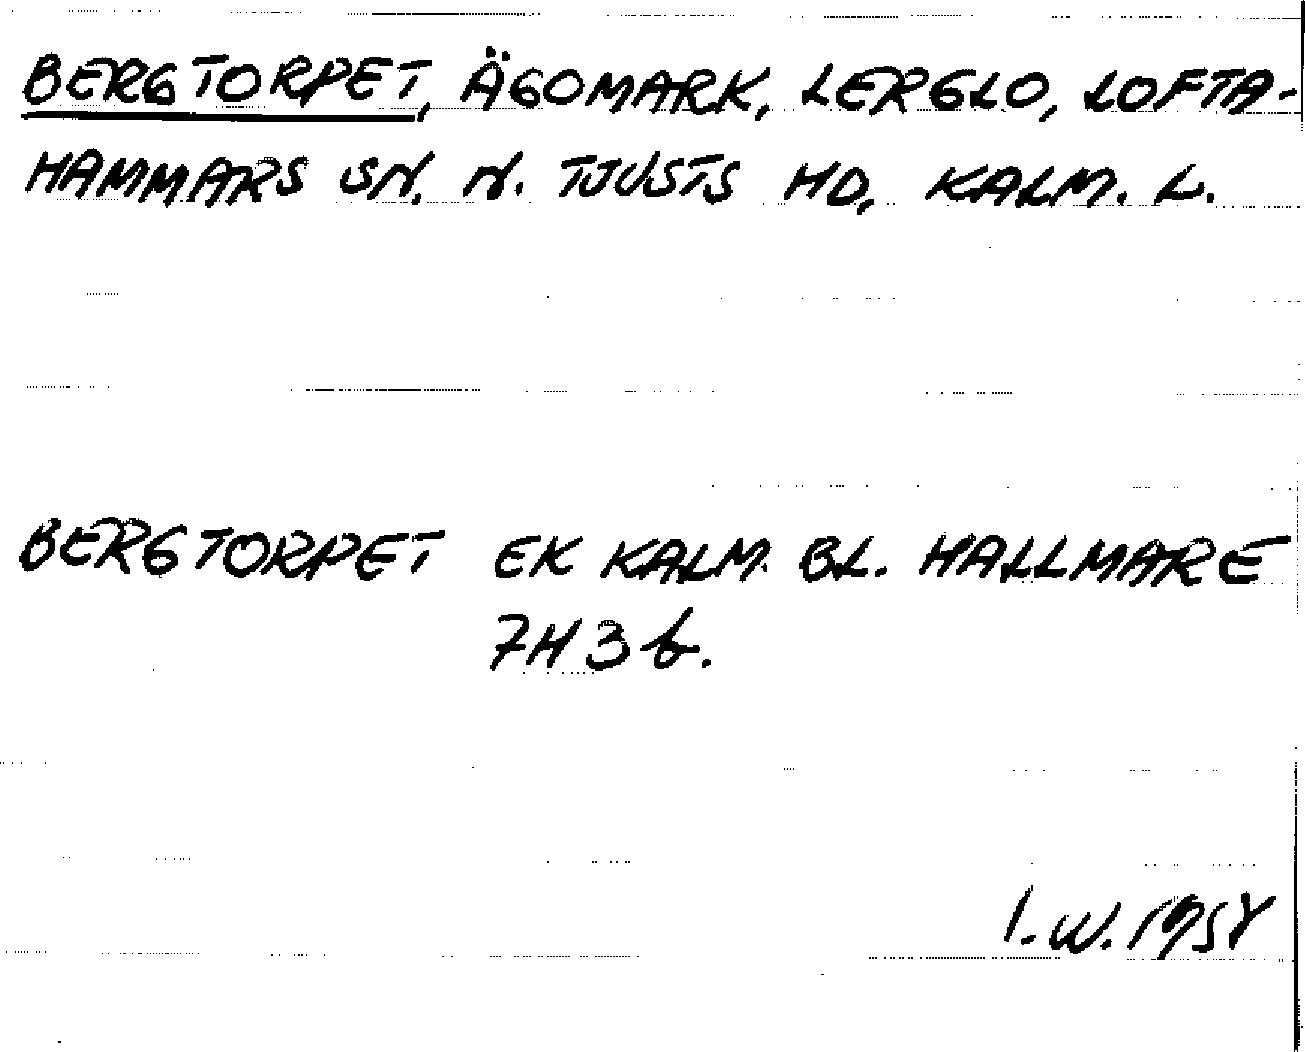 BERGTORPET, ÄGOMARK, LERGLO, LOFTA-
HAMMARS SN. N. TJUSTS HD, KALM. L.
BERGTORPET EK KALM. BL. HALLMARE
7H3b.
I.W. 1958